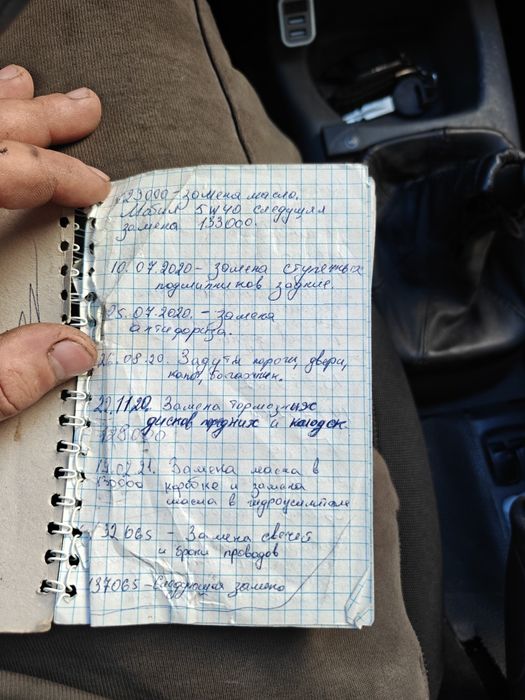 129000 - замена масло.
Мабил 5W40 следущая
замена 133000.
10.07.2020 - замена ступечных
подшипников задние.
25.07.2020. - замена
антифриза.
26.08.20. Задути пороги, двери,
капот, багажник.
22.11.20. Замена тормозных
дисков предних и калодок
129000
19.02.21. Замена масла в
130000 коробке и замена
масла в гидроусилителе
132065 - Замена свечей
и брони проводов
137065 - Следующая замена